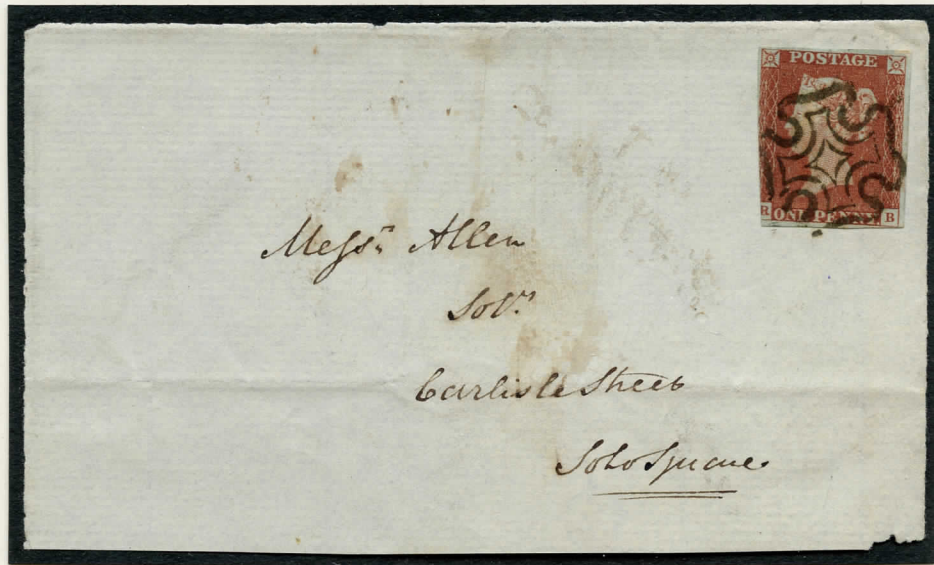 POSTAGE
R ONE PENNY B
Messrs Allen
Solrs
Carlisle Street
Soho Square